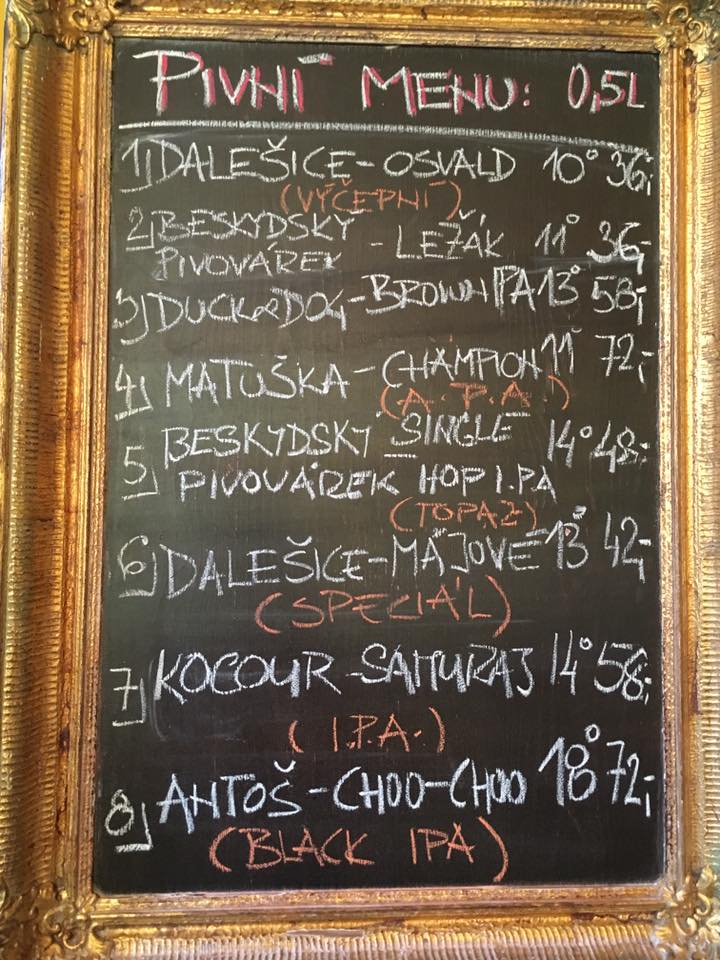 PIVNÍ MENU: 0,5L
1) DALEŠICE - OSVALD 10° 36,-
(VÝČEPNÍ)
2) BESKYDSKÝ PIVOVÁREK - LEŽÁK 11° 36,-
3) DUCK & DOG - BROWN IPA 13° 58,-
4) MATUŠKA - CHAMPION 11° 72,-
(A.P.A.)
5) BESKYDSKÝ SINGLE 14° 48,-
PIVOVÁREK HOP I.PA
(TOPAZ)
6) DALEŠICE - MÁJOVÉ 13° 42,-
(SPECIÁL)
7) KOCOUR - SAMURAJ 14° 58,-
(I.P.A.)
8) ANTOŠ - CHOO-CHOO 18° 72,-
(BLACK IPA)